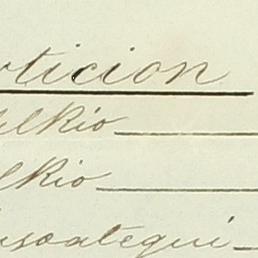 rticion
elkio
lkio
usoategui